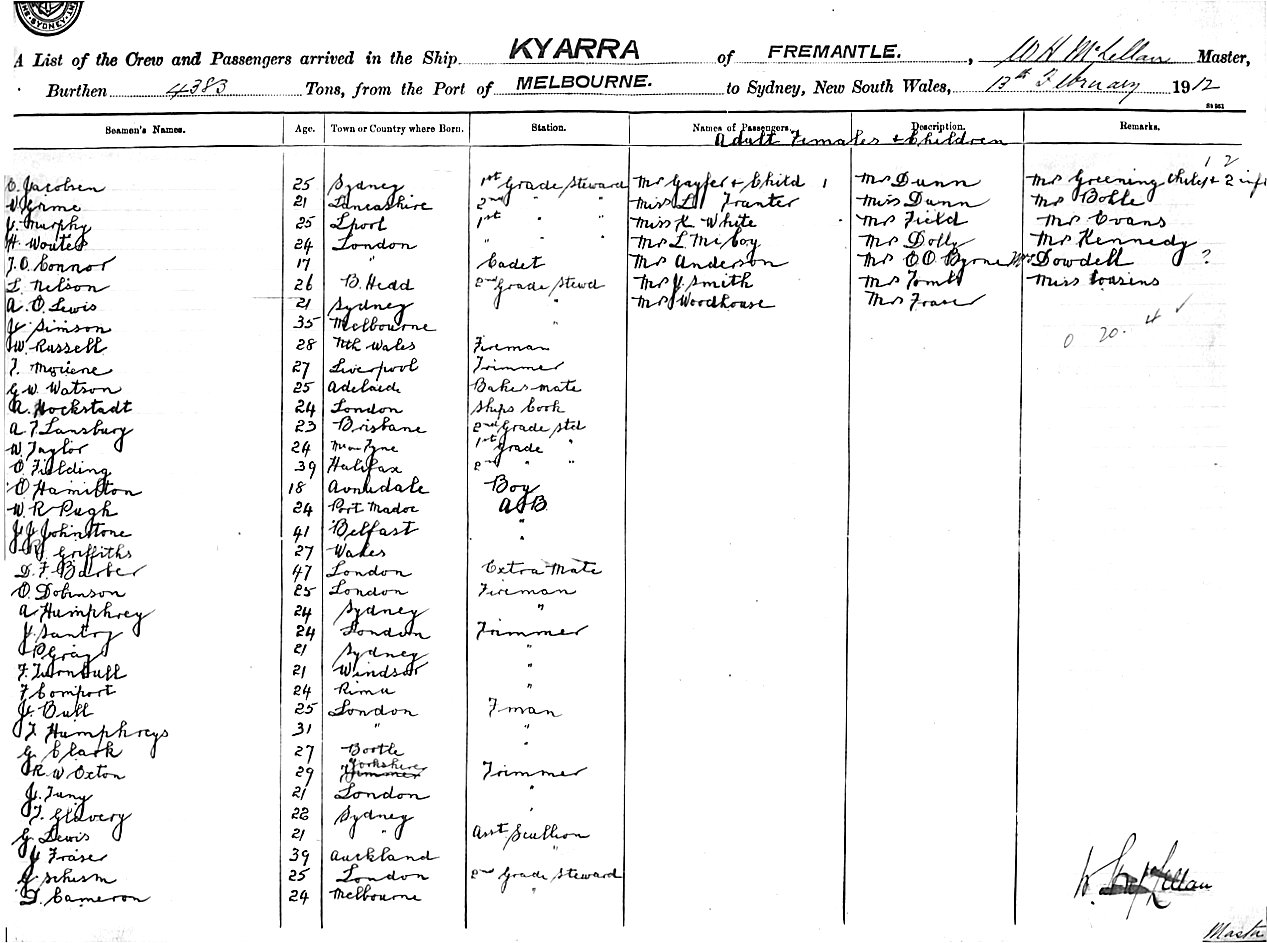 SYDNEY
A List of the Crew and Passengers arrived in the Ship KYARRA of FREMANTLE. , W H McLellan Master,
Burthen 4383 Tons, from the Port of MELBOURNE. to Sydney, New South Wales, 13th February 1912
Seamen's Names. Age. Town or Country where Born. Station. Names of Passengers. Description. Remarks.
Adult Females & Children
1 2
C. Jacobsen 25 Sydney 1st Grade Steward Mrs Gayfer & Child 1 Mrs Dunn Mrs Greening Child & 2 inf
21 Lancashire 2nd " " Miss L Tranter Miss Dunn Mrs Bolle
J. Murphy 25 Lpool 1st " " Miss K White Mrs Field Mrs Evans
H. Wouters 24 London " " " Mrs L McCoy Mrs Dolly Mrs Kennedy
T. O. Connor 17 " Cadet Mrs Anderson Mrs E O Byrne Mrs Dowdell ?
L. Nelson 26 B. Head 2nd Grade Stewd Mrs J. Smith Mrs Tomb Miss Cousens
A. O. Lewis 21 Sydney " Mrs Woodhouse Mrs Fraser
J. Simson 35 Melbourne "
0 20. 4 ✓
W. Russell 28 Nth Wales Fireman
27 Liverpool Trimmer
G. W. Watson 25 Adelaide Bakers mate
A. Hockstadt 24 London Ships Cook
A. T Lansbury 23 Brisbane 2nd Grade Std
W. Taylor 24 1st Grade "
O. Fielding 39 Halifax 2nd " "
O Hamilton 18 Annedale Boy
W. R Pugh 24 Port Madoc A B.
J J Johnstone 41 Belfast "
R. Griffiths 27 Wales "
D. F. Barber 47 London Extra Mate
O. Dobinson 25 London Fireman
A Humphrey 24 Sydney "
J. Santry 24 London Trimmer
P Gray 21 Sydney "
F. Turnbull 21 Windsor "
F Comport 24 Rima "
J. Bull 25 London Fman
T. Humphreys 31 " "
G. Clark 27 Bootle "
Yorkshire
R W Oxton 29 Trimmer Trimmer
J. Tuny 21 London "
T. Slavery 22 Sydney "
G. Lewis 21 " Asst Scullion
J Fraser 39 Auckland "
G Schism 25 London 2nd Grade Steward
D. Cameron 24 Melbourne "
W. McLellan
Master